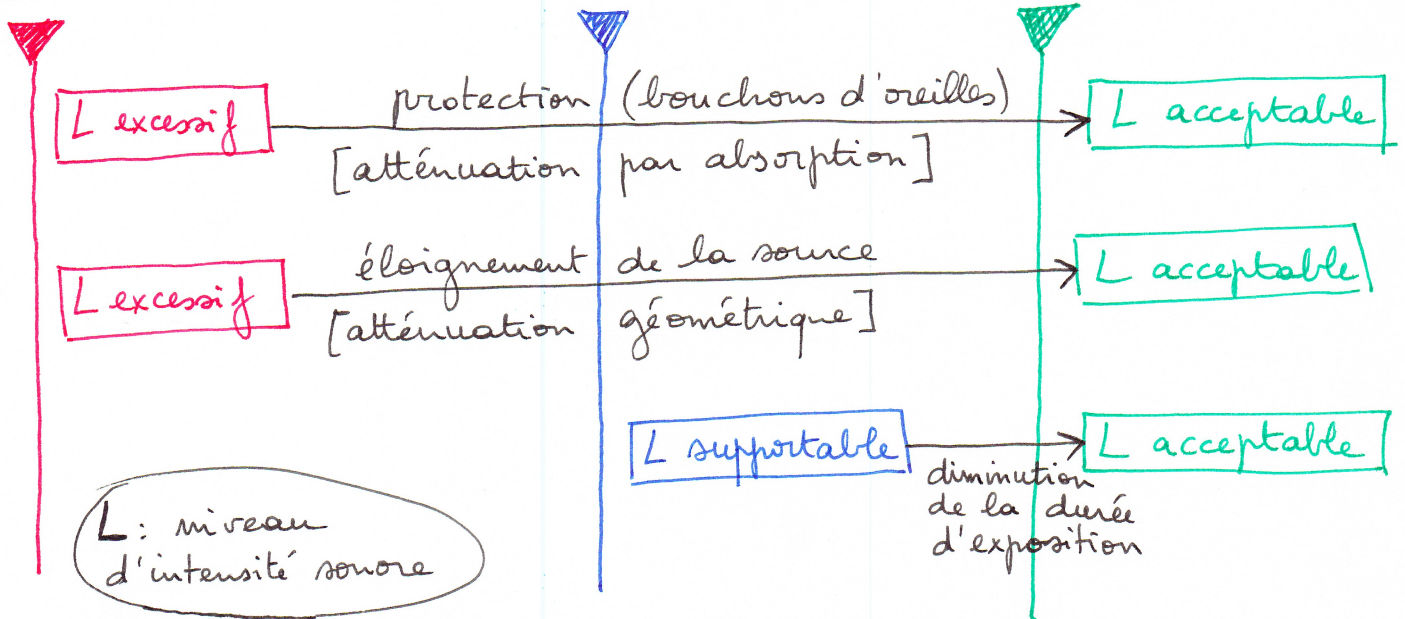 L excessif
protection (bouchons d'oreilles)
[atténuation par absorption]
L acceptable
L excessif
éloignement de la source
[atténuation géométrique]
L acceptable
L supportable
diminution
de la durée
d'exposition
L acceptable
L : niveau
d'intensité sonore